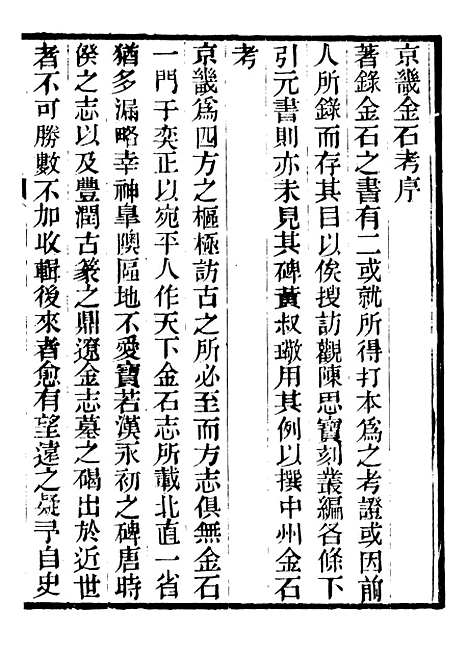 京畿金石考序
著錄金石之書有二或就所得打本爲之考證或因前
人所錄而存其目以俟搜訪觀陳思寶刻叢編各條下
引元書則亦未見其碑黃叔璥用其例以撰中州金石
考
京畿爲四方之樞極訪古之所必至而方志俱無金石
一門于奕正以宛平人作天下金石志所載北直一省
猶多漏略幸神臯隩區地不愛寶若漢永初之碑唐時
侯之志以及豐潤古篆之鼎遼金志墓之碣出於近世
者不可勝數不加收輯後來者愈有望遠之疑予自史